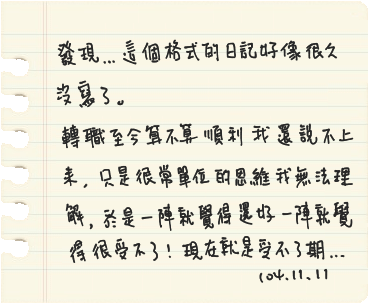 發現...這個格式的日記好像很久
沒寫了。
轉職至今算不算順利我還說不上
來，只是很常單位的思維我無法理
解，於是一陣就覺得還好一陣就覺
得很受不了！現在就是受不了期...
104.11.11